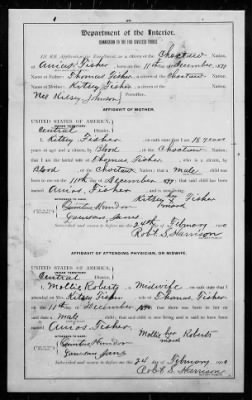 Department of the Interior,
COMMISSION TO THE FIVE CIVILIZED TRIBES.
IN RE Application for Enrollment, as a citizen of the Choctaw Nation,
of Amos Fisher, born on the 11th day of December, 1899
Name of Father: Thomas Fisher, a citizen of the Choctaw Nation.
Name of Mother: Kitsey Fisher, a citizen of the Choctaw Nation.
Nee Kitsey Johnson
AFFIDAVIT OF MOTHER.
UNITED STATES OF AMERICA,
INDIAN TERRITORY,
Central District.
I, Kitsey Fisher, on oath state that I am 18
years of age and a citizen, by Blood, of the Choctaw Nation;
that I am the lawful wife of Thomas Fisher, who is a citizen, by
Blood of the Choctaw Nation; that a male child was
born to me on 11th day of December, 1899; that said child has been
named Amos Fisher, and is now living.
her
Kitsey x Fisher
mark
24th February
Robt S. Harrison
AFFIDAVIT OF ATTENDING PHYSICIAN, OR MIDWIFE.
UNITED STATES OF AMERICA,
INDIAN TERRITORY,
Central District.
I, Mollie Roberts, a Midwife, on oath state that I
attended on Mrs. Kitsey Fisher, wife of Thomas Fisher,
on the 11th day of December, 1899; that there was born to her on said date
a male child; that said child is now living and is said to have been
named Amos Fisher.
her
Mollie x Roberts
mark
24 February
Robt S. Harrison